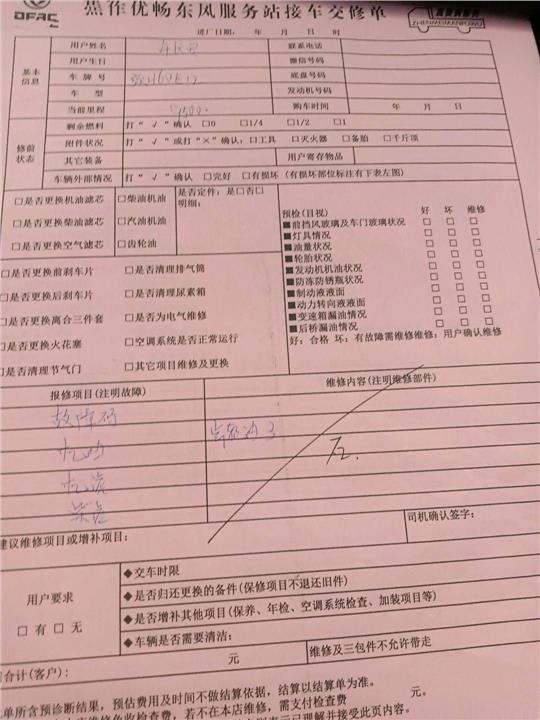 DFAC 焦作优畅东风服务站接车交修单
ZHENWEIMANPOWU
进厂日期： 年 月 日 时
基本信息
用户姓名 联系电话
用户生日 微信号码
车牌号 底盘号码
车型 发动机号码
当前里程 购车时间 年 月 日
修前状态
剩余燃料 打“√”确认 □0 □1/4 □1/2 □1
附件状况 打“√”或打“×”确认：□工具 □灭火器 □备胎 □千斤顶
其它装备 用户寄存物品
车辆外部情况 打“√”确认 □完好 □有损坏（有损坏部位标注有下表左图）
□是否更换机油滤芯 □柴油机油 是否定件：是□否□
明细：
□是否更换柴油滤芯 □汽油机油
□是否更换空气滤芯 □齿轮油
□是否更换前刹车片 □是否清理排气筒
□是否更换后刹车片 □是否清理尿素箱
□是否更换离合三件套 □是否为电气维修
□是否更换火花塞 □空调系统是否正常运行
□是否清理节气门 □其它项目维修及更换
预检(目视) 好 坏 维修
■前挡风玻璃及车门玻璃状况 □ □ □
■灯具情况 □ □ □
■油量状况 □ □ □
■轮胎状况 □ □ □
■发动机机油状况 □ □ □
■防冻防锈瓶状况 □ □ □
■制动液液面 □ □ □
■动力转向液液面 □ □ □
■变速箱漏油情况 □ □ □
■后桥漏油情况 □ □ □
好：合格 坏：有故障需维修维修：用户确认维修
报修项目(注明故障) 维修内容(注明维修部件)
故障码
机油
建议维修项目或增补项目： 司机确认签字：
用户要求
□有 □无
◆交车时限
◆是否归还更换的备件(保修项目不退还旧件)
◆是否增补其他项目(保养、年检、空调系统检查、加装项目等)
◆车辆是否需要清洁：
合计(客户)： 元 维修及三包件不允许带走
单所含预诊断结果，预估费用及时间不做结算依据，结算以结算单为准。
若不在本店维修，需支付检查费 元。